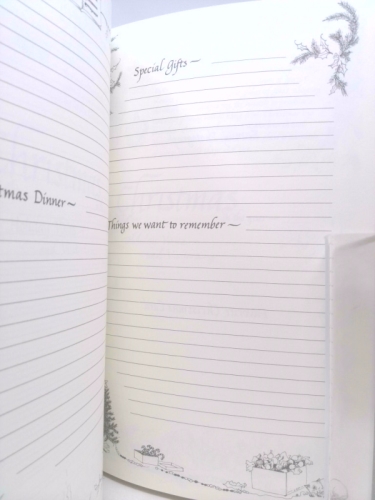 tmas Dinner~
Special Gifts —
Things we want to remember —